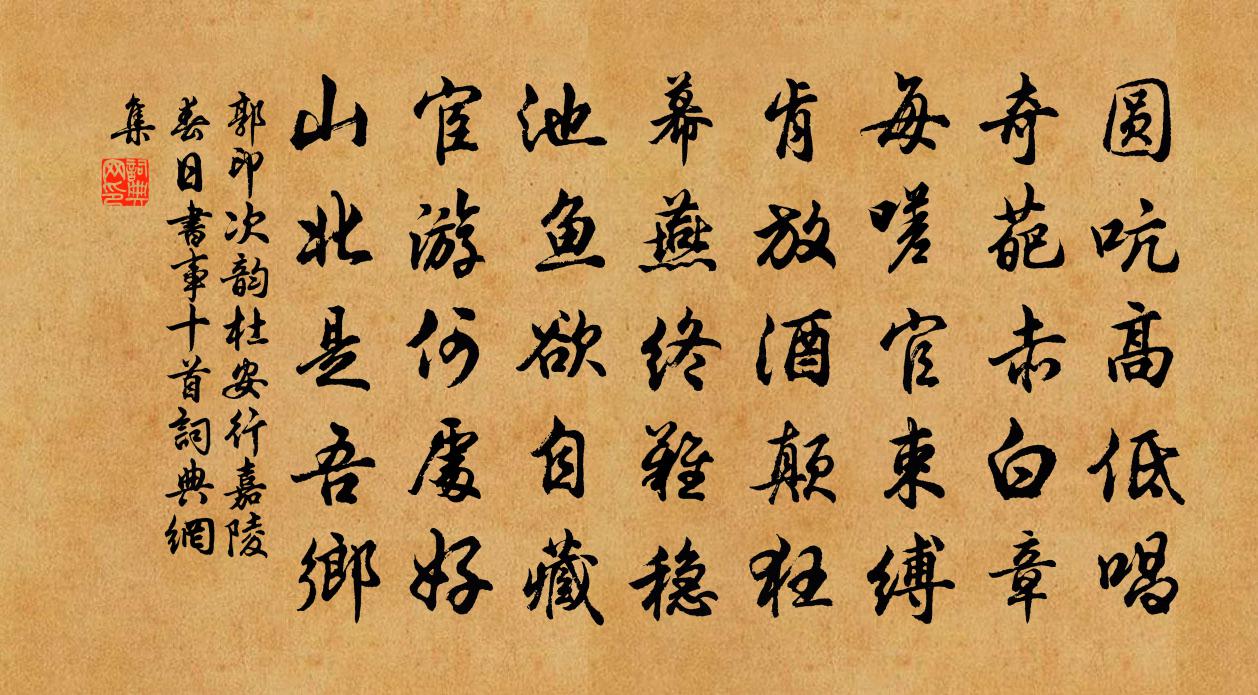 圆吭高低唱
奇葩赤白章
每嗟官束縛
肯放酒颠狂
幕燕终難稳
池鱼欲自藏
宦游何處好
山北是吾鄉
郭印次韵杜安行嘉陵
春日書事十首詞典網
集
詞典网印